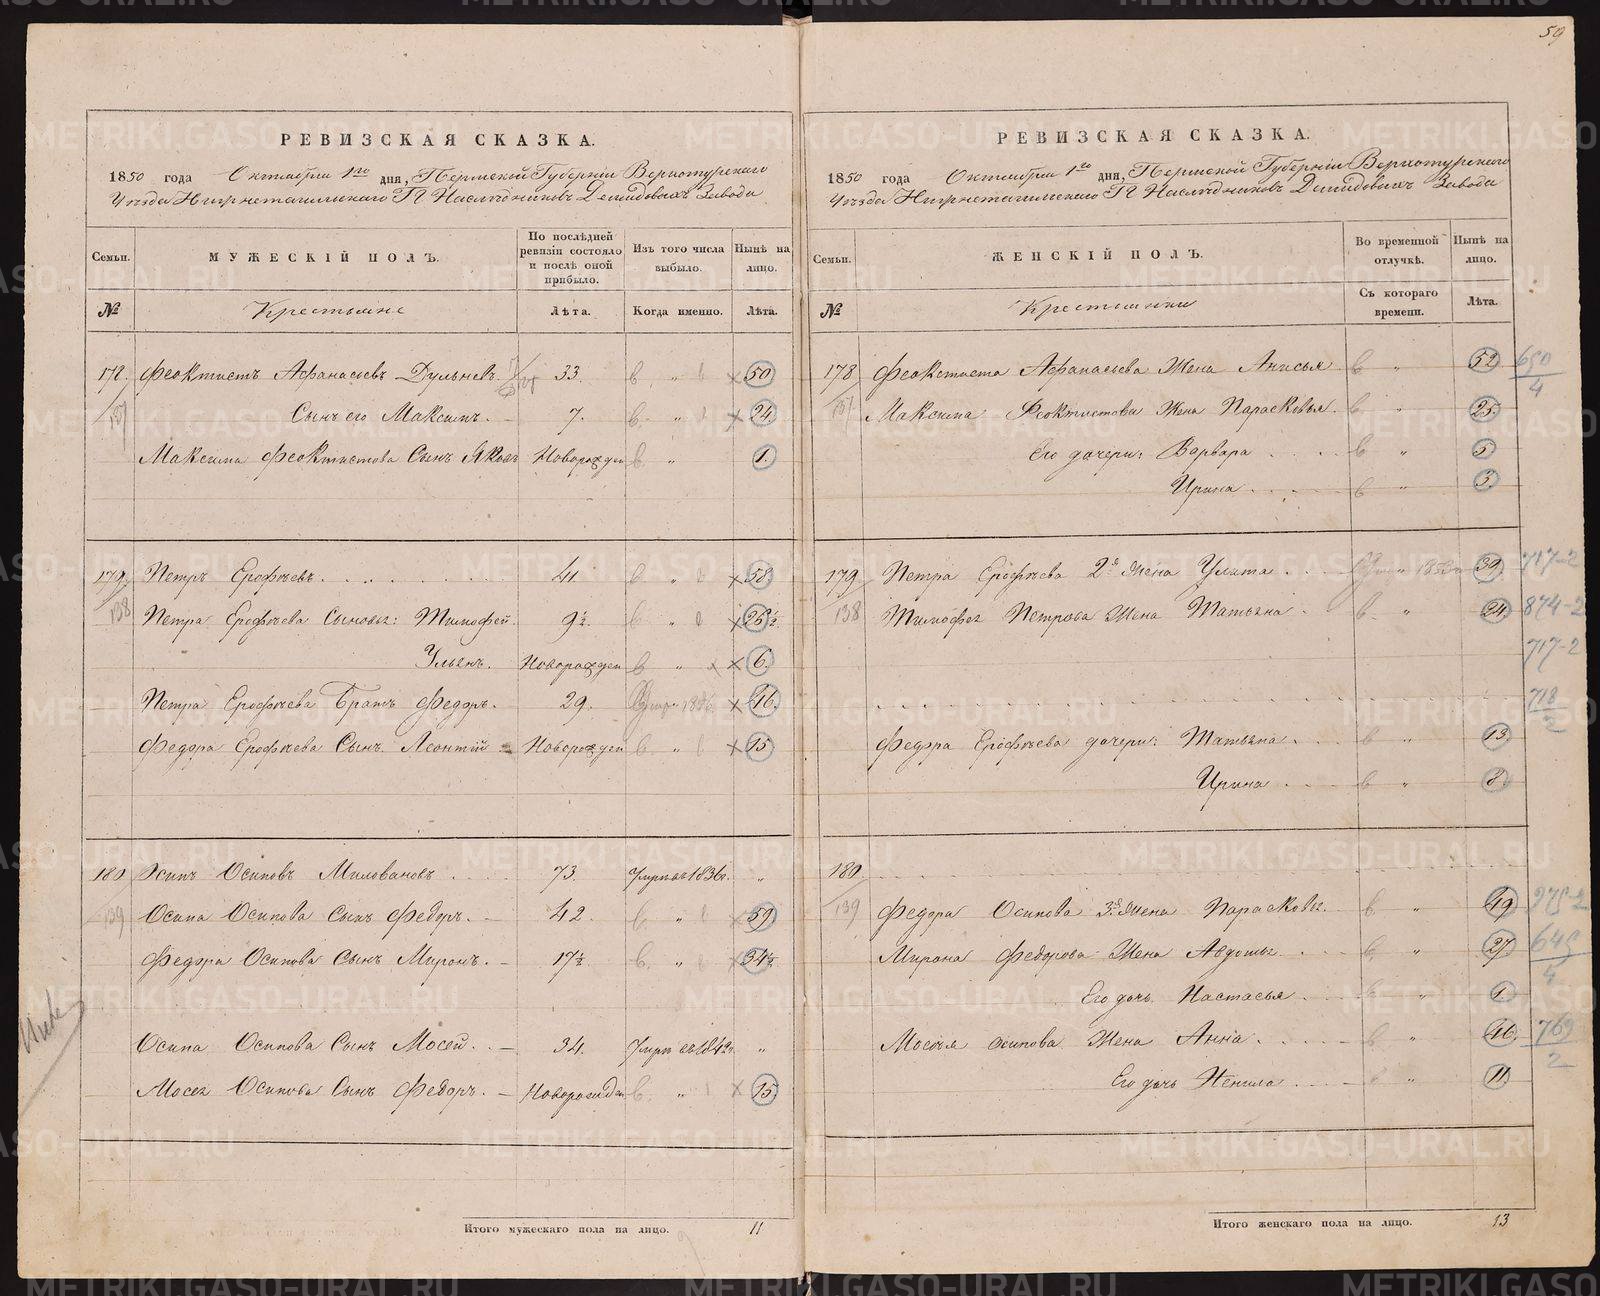 59
РЕВИЗСКАЯ СКАЗКА.
1850 года Октября 1го дня, Пермской Губерніи Верхотурскаго
Уѣзда Нижнетагильскаго Гг Наслѣдниковъ Демидовыхъ Завода
Семьи. МУЖЕСКІЙ ПОЛЪ. По послѣдней ревизіи состояло и послѣ оной прибыло. Изъ того числа выбыло. Нынѣ на лицо.
№ Крестьяне Лѣта. Когда именно. Лѣта.
178. Феоктистъ Афанасьевъ Дульневъ 33. в " 50
137 Сынъ его Максимъ. 7. в " 24
Максима Феоктистова Сынъ Яковъ Новорожден в " 1.
179 Петръ Ерофѣевъ 41 в " 58
138 Петра Ерофѣева Сыновья: Тимофей. 9½. в " 26½
Ульянъ. Новорожден в " 6.
Петра Ерофѣева Братъ Федоръ. 29. 1836 46.
Федора Ерофѣева Сынъ Леонтій Новорожден в " 15
180 Осипъ Осиповъ Миловановъ 73. Умръ въ 1836г. "
139 Осипа Осипова Сынъ Федоръ. 42. в " 59
Федора Осипова Сынъ Миронъ. 17½ в. " 34½
Осипа Осипова Сынъ Мосей. 34. Умръ въ 1842г. "
Мосея Осипова Сынъ Федоръ. Новорожден в. " 15.
Итого мужескаго пола на лицо. 11
РЕВИЗСКАЯ СКАЗКА.
1850 года Октября 1го дня, Пермской Губерніи Верхотурскаго
Уѣзда Нижнетагильскаго Гг Наслѣдниковъ Демидовыхъ Завода
Семьи. ЖЕНСКІЙ ПОЛЪ. Во временной отлучкѣ. Нынѣ на лицо.
№ Крестьянки Съ котораго времени. Лѣта.
178 Феоктиста Афанасьева Жена Анисья в " 52 650/4
137 Максима Феоктистова Жена Парасковья. в " 25.
Его дочери: Варвара в " 5
Ирина в " 3.
179 Петра Ерофѣева 2я Жена Улита " 39. 717-2
138 Тимофея Петрова Жена Татьяна в. " 24. 874-2
717-2
718/2
Федора Ерофѣева дочери: Татьяна в " 13.
Ирина в " 8.
180
139 Федора Осипова 3я Жена Парасковья. в " 49 975-2
Мирона Федорова Жена Авдотья в. " 27. 645/4
Его дочь Настасья в " 1.
Мосея Осипова Жена Анна в " 46. 769/2
Его дочь Ненила в " 11.
Итого женскаго пола на лицо. 13
METRIKI.GASO-URAL.RU